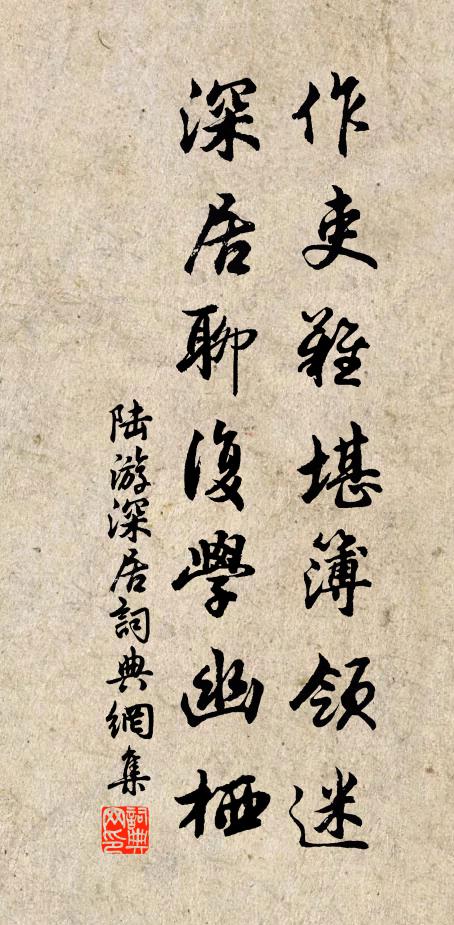 作吏難堪簿領迷
深居聊復學幽栖
陸游深居詞典網集
詞典網印